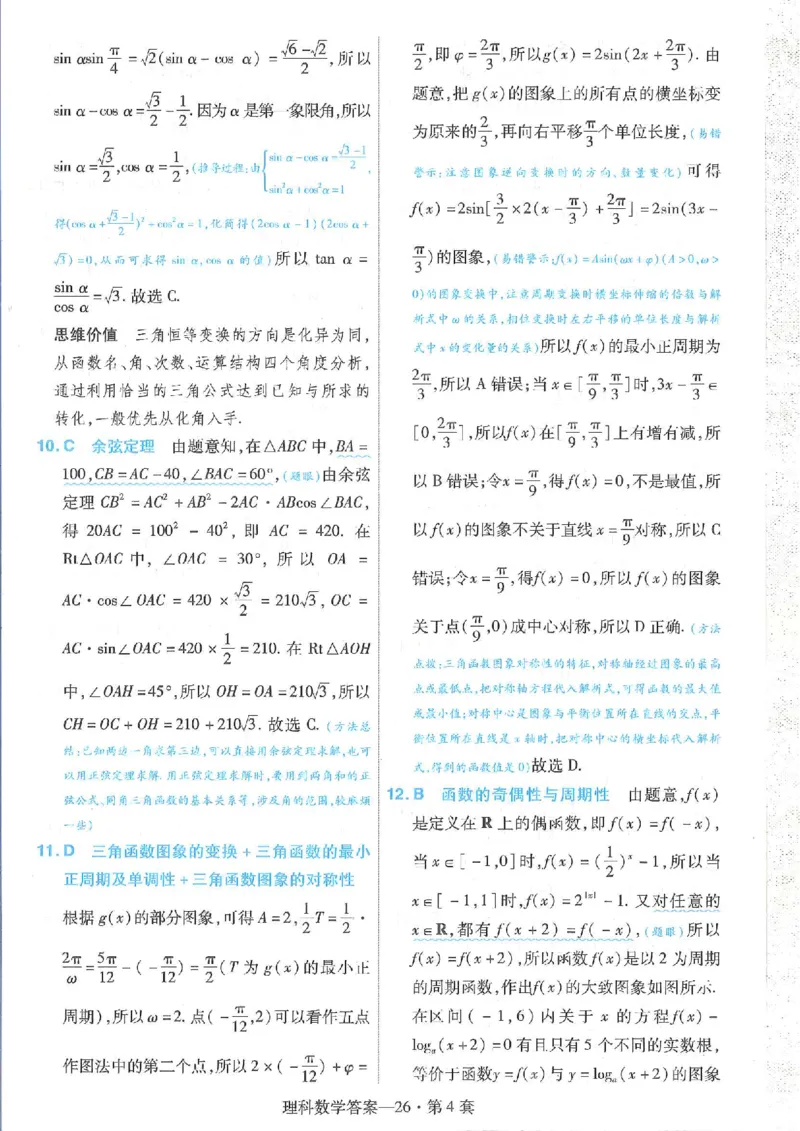 sin αsin π/4 = √2(sin α - cos α) = (√6-√2)/2,所以
sin α-cos α=√3/2-1/2.因为α是第一象限角,所以
sin α=√3/2,cos α=1/2,(推导过程:由{sin α-cos α=(√3-1)/2, sin²α+cos²α=1
得(cos α+(√3-1)/2)²+cos²α=1,化简得(2cos α-1)(2cos α+
√3)=0,从而可求得 sin α,cos α 的值)所以 tan α =
sin α/cos α=√3.故选C.
思维价值 三角恒等变换的方向是化异为同,
从函数名、角、次数、运算结构四个角度分析,
通过利用恰当的三角公式达到已知与所求的
转化,一般优先从化角入手.
10.C 余弦定理 由题意知,在△ABC中,BA=
100,CB=AC-40,∠BAC=60°,(题眼)由余弦
定理 CB²=AC²+AB²-2AC·ABcos∠BAC,
得 20AC = 100² - 40², 即 AC = 420. 在
Rt△OAC 中, ∠OAC = 30°, 所以 OA =
AC·cos∠OAC = 420 × √3/2 = 210√3, OC =
AC·sin∠OAC=420×1/2=210.在 Rt△AOH
中,∠OAH=45°,所以OH=OA=210√3,所以
CH=OC+OH=210+210√3.故选C.(方法总
结:已知两边一角求第三边,可以直接用余弦定理求解,也可
以用正弦定理求解.用正弦定理求解时,要用到两角和的正
弦公式、同角三角函数的基本关系等,涉及角的范围,较麻烦
一些)
11.D 三角函数图象的变换+三角函数的最小
正周期及单调性+三角函数图象的对称性
根据g(x)的部分图象,可得A=2,1/2T=1/2·
2π/ω=5π/12-(-π/12)=π/2(T为g(x)的最小正
周期),所以ω=2.点(-π/12,2)可以看作五点
作图法中的第二个点,所以2×(-π/12)+φ=
π/2,即φ=2π/3,所以g(x)=2sin(2x+2π/3).由
题意,把g(x)的图象上的所有点的横坐标变
为原来的2/3,再向右平移π/3个单位长度,(易错
警示:注意图象逆向变换时的方向、数量变化)可得
f(x)=2sin[3/2×2(x-π/3)+2π/3]=2sin(3x-
π/3)的图象,(易错警示:f(x)=Asin(ωx+φ)(A>0,ω>
0)的图象变换中,注意周期变换时横坐标伸缩的倍数与解
析式中ω的关系,相位变换时左右平移的单位长度与解析
式中x的变化量的关系)所以f(x)的最小正周期为
2π/3,所以A错误;当x∈[π/9,π/3]时,3x-π/3∈
[0,2π/3],所以f(x)在[π/9,π/3]上有增有减,所
以B错误;令x=π/9,得f(x)=0,不是最值,所
以f(x)的图象不关于直线x=π/9对称,所以C
错误;令x=π/9,得f(x)=0,所以f(x)的图象
关于点(π/9,0)成中心对称,所以D正确.(方法
点拨:三角函数图象对称性的特征,对称轴经过图象的最高
点或最低点,把对称轴方程代入解析式,可得函数的最大值
或最小值;对称中心是图象与平衡位置所在直线的交点,平
衡位置所在直线是x轴时,把对称中心的横坐标代入解析
式,得到的函数值是0)故选D.
12.B 函数的奇偶性与周期性 由题意,f(x)
是定义在R上的偶函数,即f(x)=f(-x),
当x∈[-1,0]时,f(x)=(1/2)ˣ-1,所以当
x∈[-1,1]时,f(x)=2^|x|-1.又对任意的
x∈R,都有f(x+2)=f(-x),(题眼)所以
f(x)=f(x+2),所以函数f(x)是以2为周期
的周期函数,作出f(x)的大致图象如图所示.
在区间(-1,6)内关于x的方程f(x)-
logₐ(x+2)=0有且只有5个不同的实数根,
等价于函数y=f(x)与y=logₐ(x+2)的图象
理科数学答案—26·第4套